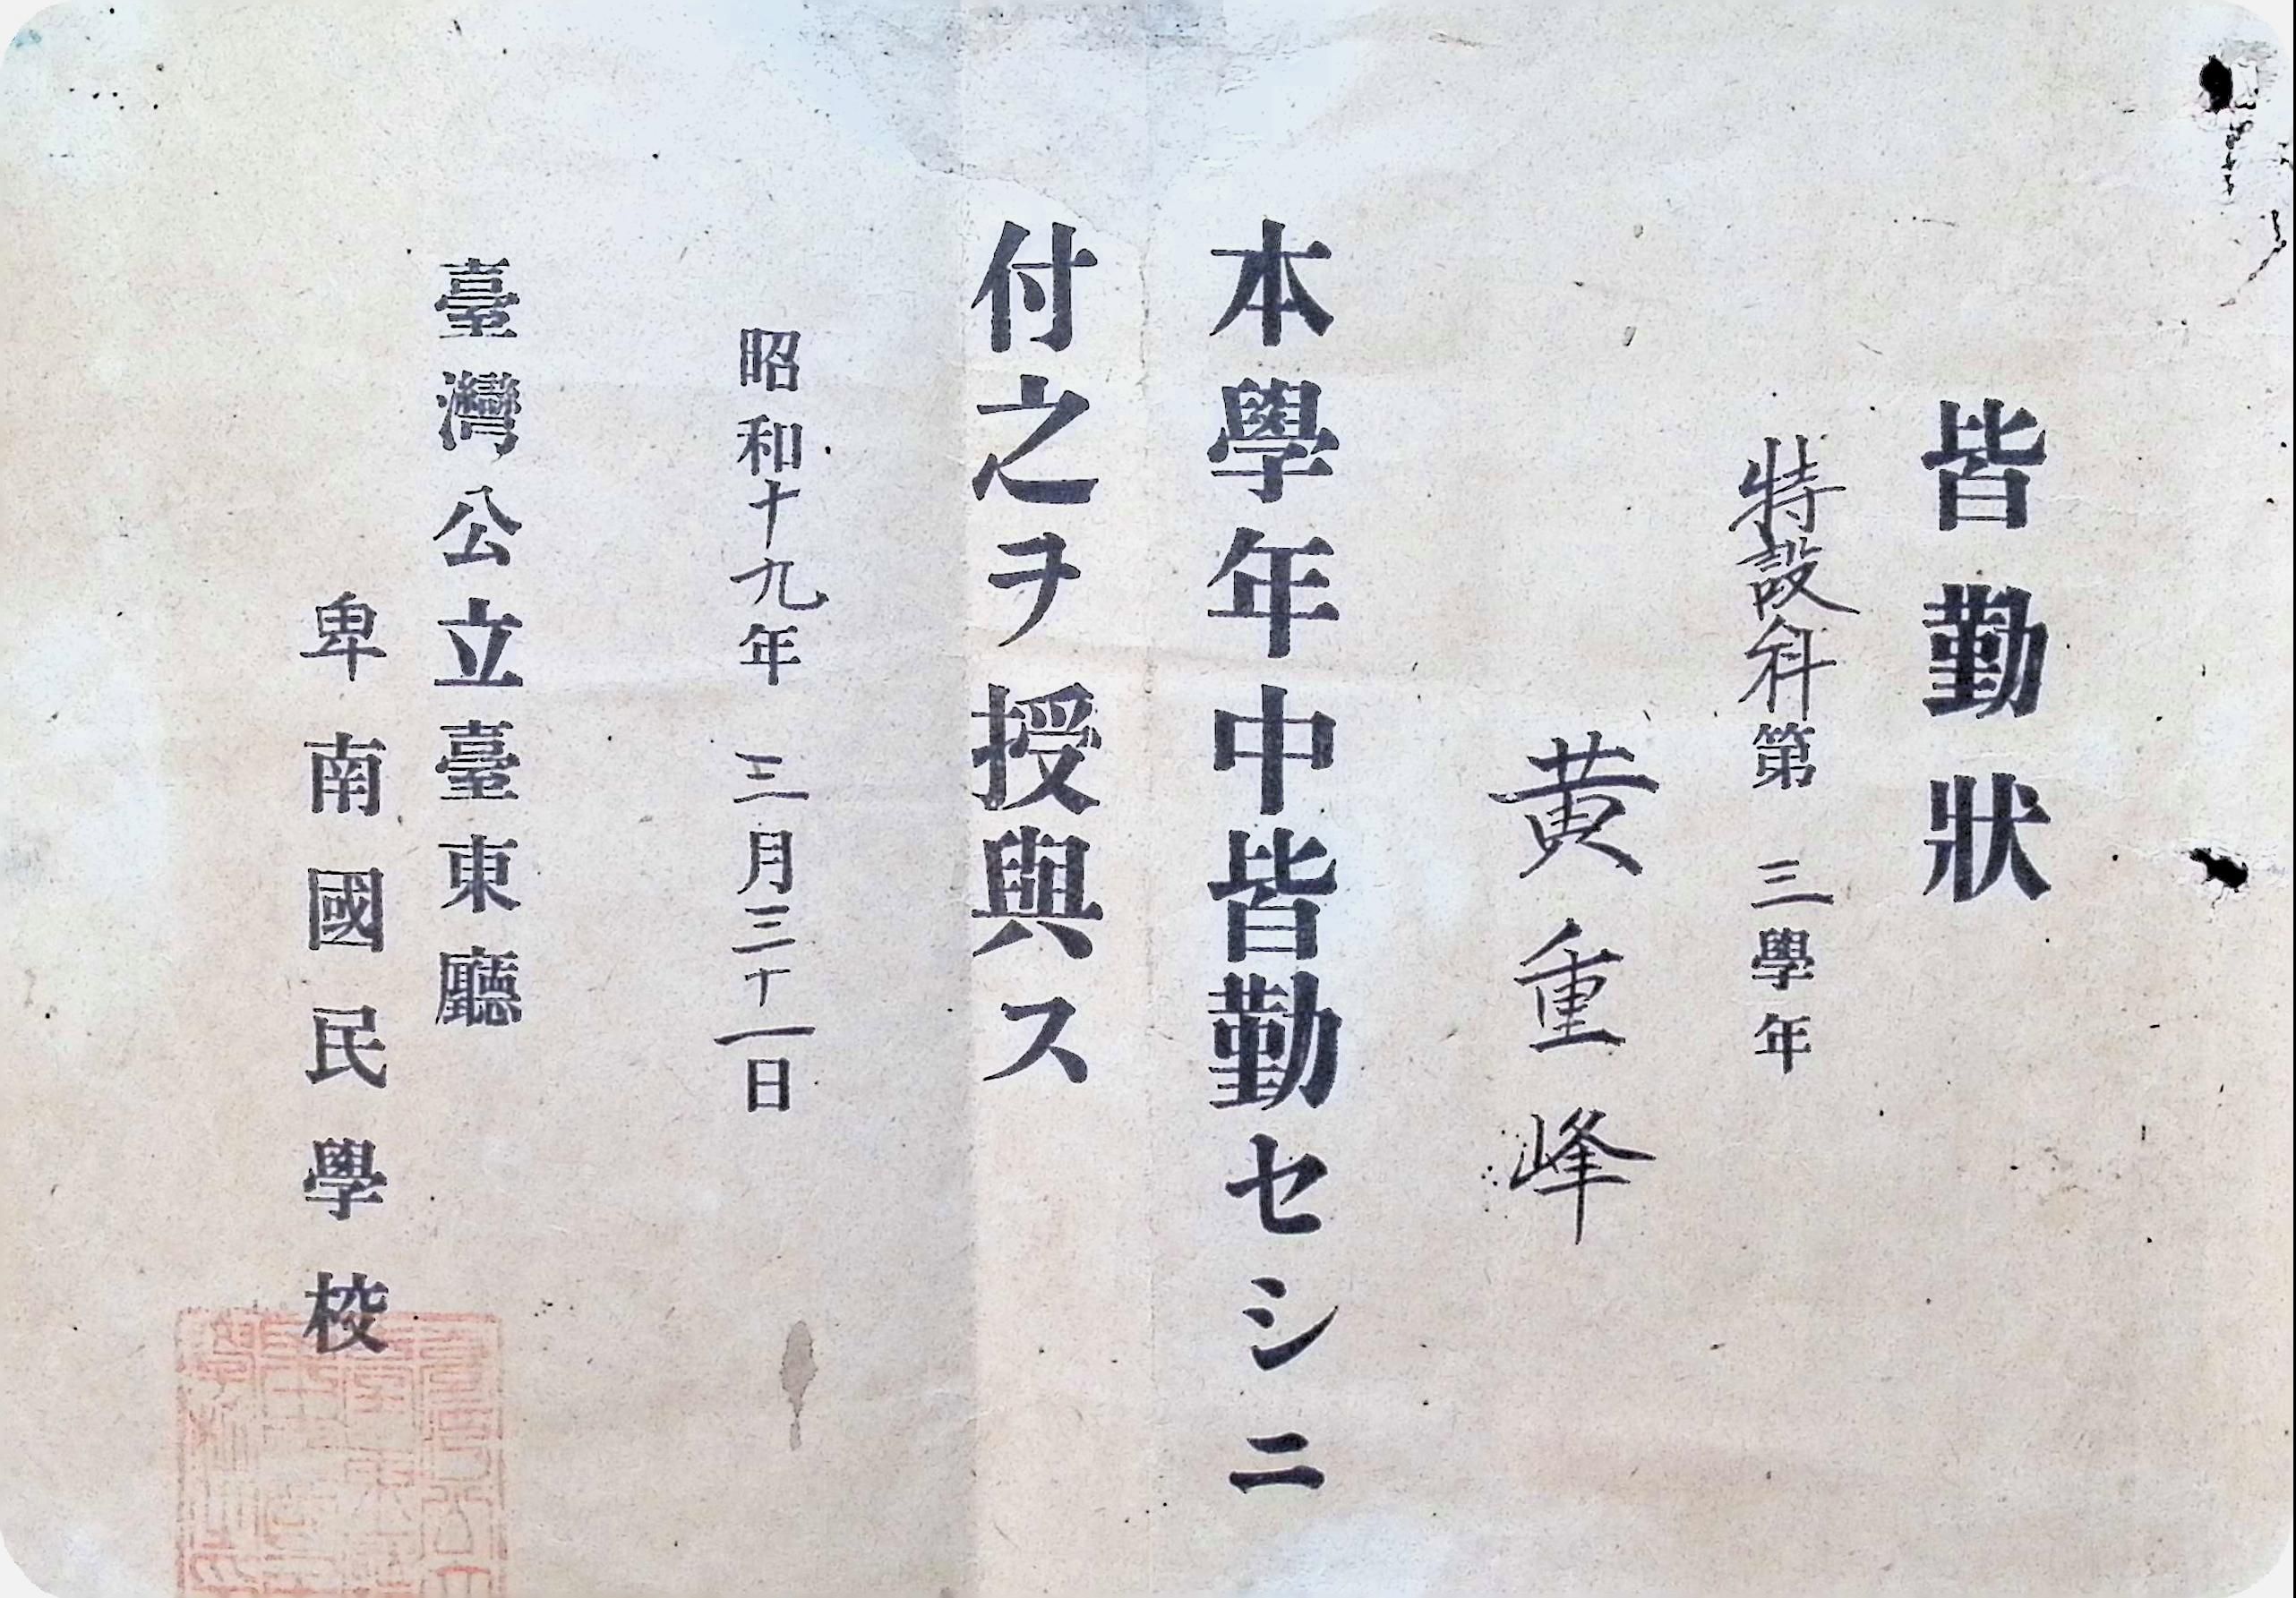 皆勤狀
特設科第三學年
黄重峰
本學年中皆勤セシニ
付之ヲ授與ス
昭和十九年三月三十一日
臺灣公立臺東廳
卑南國民學校